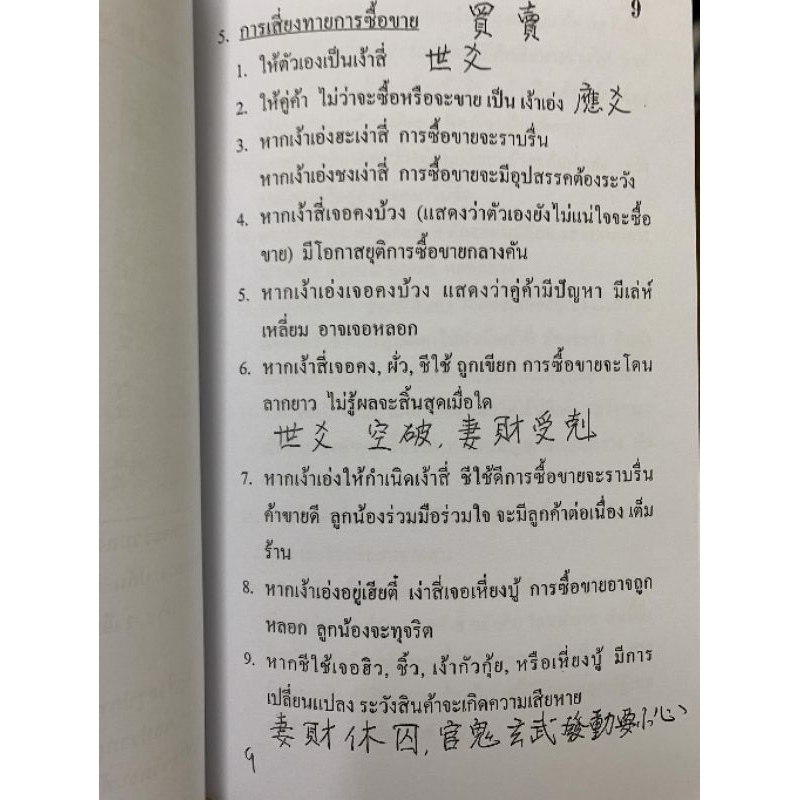 9
5. การเสี่ยงทายการซื้อขาย 買賣
1. ให้ตัวเองเป็นเง้าสี่ 世爻
2. ให้คู่ค้า ไม่ว่าจะซื้อหรือจะขาย เป็น เง้าเอ่ง 應爻
3. หากเง้าเอ่งฮะเง่าสี่ การซื้อขายจะราบรื่น
หากเง้าเอ่งชงเง่าสี่ การซื้อขายจะมีอุปสรรคต้องระวัง
4. หากเง้าสี่เจอคงบ้วง (แสดงว่าตัวเองยังไม่แน่ใจจะซื้อ
ขาย) มีโอกาสยุติการซื้อขายกลางคัน
5. หากเง้าเอ่งเจอคงบ้วง แสดงว่าคู่ค้ามีปัญหา มีเล่ห์
เหลี่ยม อาจเจอหลอก
6. หากเง้าสี่เจอคง, ผั่ว, ชีใช้ ถูกเขียก การซื้อขายจะโดน
ลากยาว ไม่รู้ผลจะสิ้นสุดเมื่อใด
世爻 空破, 妻財受剋
7. หากเง้าเอ่งให้กำเนิดเง้าสี่ ชีใช้ดีการซื้อขายจะราบรื่น
ค้าขายดี ลูกน้องร่วมมือร่วมใจ จะมีลูกค้าต่อเนื่อง เต็ม
ร้าน
8. หากเง้าเอ่งอยู่เฮียตี๋ เง่าสี่เจอเหี่ยงบู้ การซื้อขายอาจถูก
หลอก ลูกน้องจะทุจริต
9. หากชีใช้เจอฮิว, ชิ้ว, เง้ากัวกุ้ย, หรือเหี่ยงบู้ มีการ
เปลี่ยนแปลง ระวังสินค้าจะเกิดความเสียหาย
妻財休囚, 官鬼玄武發動要小心
9